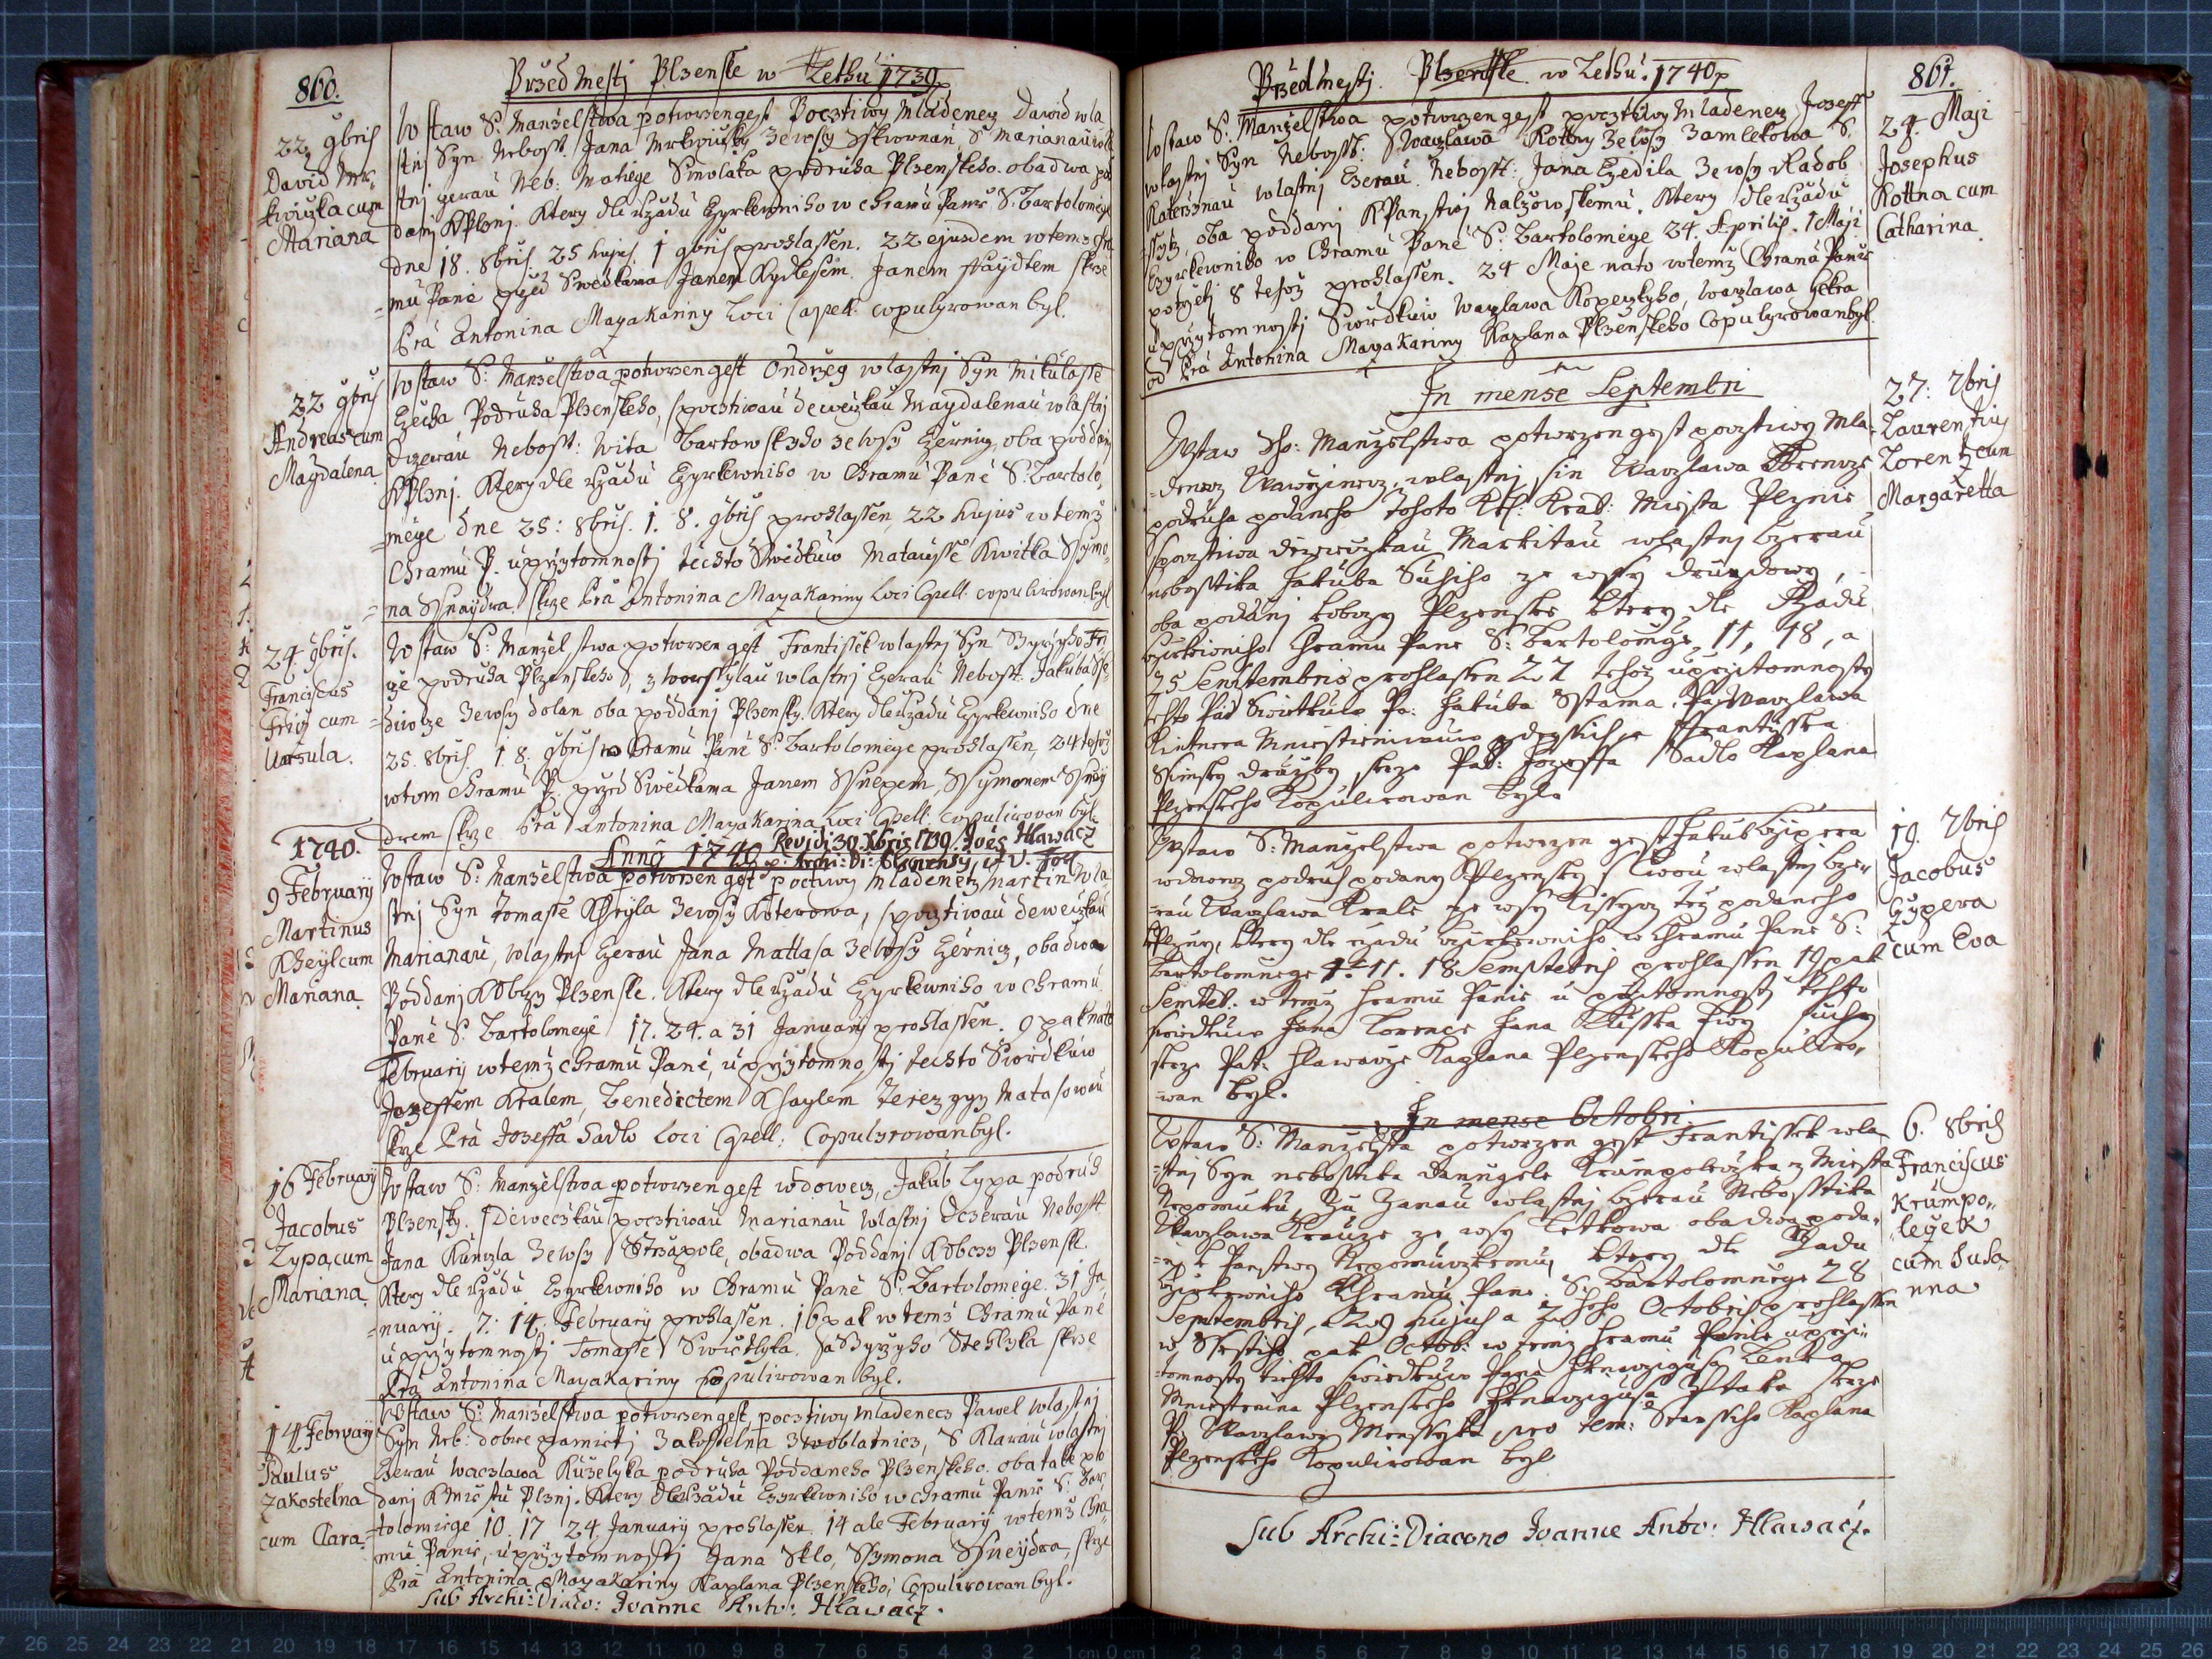 860.
Przed Mestj Plzenske w Lethu 1739
22 9bris
David Mr-
kwiczka cum
Mariana
W staw S: Manzelstwa potwrzen gest Pocztiwy Mladenecz Dawid wla
stnj Syn Nebost. Jana Mrkwiczky ze wsy Sskwrnan, S Marianau wla
stnj czerau Neb: Matiege Smolaka podruha Plzenskeho. obadwa pod
danj KPlznj. Ktery dle rzadu Czyrkewniho w Chramu Pane S. Bartolomege
dne 18. 8bris 25 hujus. 1 9bris prohlassen. 22 ejusdem w temz Chra
=mu Pane przed Swedkama Janem Kydlesem. Janem Haydlem skrze
Pra Antonina Mayakariny Loci Capell: copulyrowan byl.
22 9bris
Andreas cum
Magdalena
W staw S: Manzelstwa potwrzen gest Ondrzeg wlastnj Syn Mikulasse
Czecha Podruha Plzenskeho, s pocztiwau deweczkau Magdalenau wlastnj
dczerau Nebost: Wita Bartowskyho ze wsy Czernicz, oba poddanj
KPlznj. Ktery dle rzadu Czyrkewniho w Chramu Pane S: Bartolo,
=mege dne 25: 8bris. 1. 8. 9bris prohlassen, 22 hujus w temz
Chramu P. u przytomnostj techto Swedkuw Matausse Kwitka Ssymo,
=na Ssnaydra. skrze Pra Antonina Mayakariny Loci Cpell. copulirowan byl
24 9bris.
Franciscus
Fricz cum
Ursula.
W staw S: Manzelstwa potwrzen gest Frantissek wlastnj Syn Girzyho Fri
cze podruha Plzenskeho S, z worsylau wlastnj Czerau Nebost. Jakuba
ze wsy dolan oba poddanj Plzensky. Ktery dle rzadu Czyrkewniho dne
25. 8bris. 1 8. 9bris w Chramu Pane S: Bartolomege prohlassen, 24 tehoz
w tom Chramu P. przed Swedkama Janem Ssnepem, Ssymonem Ssney
drem skrze Pra Antonina Mayakarina Loci Cpell: copulirowan byl
Revidi 30. Xbris 1739. Joes Hlawacz
1740.
Anno 1740
9 February
Martinus
Kheyl cum
Mariana.
W staw S: Manzelstwa potwrzen gest poctiwy Mladenecz Martin Wla
stnj Syn Tomasse Kheyla ze wsy Koterowa, s pocztiwau deweczkau
Marianau, wlastnj Czerau Jana Mattasa ze wsy Czernicz, obadwa
Poddanj KObczy Plzenske. Ktery dle rzadu Czyrkewniho w Chramu
Pane S. Bartolomege 17. 24. a 31 January prohlassen. 9 pak nato
February w temz Chramu Pane, u przytomnostj techto Swedkuw
Jozeffem Kralem, Benedictem Khaylem Terezygy Matasowau
skrze Pra Joseffa Sadlo Loci Cpell: Copulyrowan byl.
16 February
Jacobus
Lypa, cum
Mariana.
W staw S: Manzelstwa potwrzen gest wdowecz, Jakub Lypa podruh
Plzensky. S Deweczkau pocztiwau Marianau Wlastnj Dczerau Nebost
Jana Kunczla ze wsy Strzapole, obadwa Poddanj KObczy Plzenske.
Ktery dle rzadu Czyrkewniho w Chramu Pane S. Bartolomege. 31 Ja,
=nuary. 7. 14. February prohlassen. 16 pak w temz Chramu Pane
u przytomnostj Tomasse Swietlyka. Ja Girzyho Stehlyka skrze
Pra Antonina Mayakariny Copulirowan byl.
14 February
Paulus
Zakostelna
cum Clara.
W staw S: Manzelstwa potwrzen gest, pocztiwy Mladenecz Pawel Wlastnj
Syn Neb: dobre pamietj Zakostelna z woblatnicz, S Klarau wlastnj
Czerau Waczlawa Kuzelyka podruha Poddaneho Plzenskeho. oba take po
danj KMiestu Plznj. Ktery dle rzadu Czyrkewniho w Chramu Panie S: Bar,
=tolomiege 10. 17 24 January prohlassen. 14 ale February w temz Chra
mu Panie, u przytomnostj Jana Sklo, Ssymona Ssneydra, skrze
Pra Antonina Mayakariny Kaplana Plzenskeho, Copulirowan byl.
Sub Archi: Diaco: Joanne Anto: Hlawacz.
861.
Przed Mestj. Plzenske w Lethu. 1740
24. Maji
Josephus
Kottna cum
Catharina
W staw S: Manzelstwa potwrzen gest pocztiwy Mladenecz Joseff
wlastnj Syn Nebost: Waczlawa Kottny ze wsy Zamlekowa S.
Katerzinau wlastnj Czerau. Nebost: Jana Czedila ze wsy Radob
oba poddanj KPanstwj Nalzowskemu. Ktery dle rzadu
Czyrkewniho w Chramu Pane S: Bartolomege 24. Aprilis. 1 Maji
potretj 8 tehoz prohlassen. 24 Maje nato w temz Chramu Pane
u przytomnostj Swedkuw Waczlawa Kopeczkyho, Waczlawa
od Pra Antonina Mayakariny Kaplana Plzenskeho Copulyrowan byl.
In mense Septembri
27: 7bris
Laurentius
Lorentz cum
Margaretta
W staw Sv: Manzelstwa potwrzen gest pocztiwy Mla-
=denecz Wawrzinecz, wlastnj sin Waczlawa Lorencze
podruha podaneho tohoto Kral: Miesta Plznie
s pocztiwa diewczkau Markitau wlastnj dczerau
nebosstika Jakuba Suchiho ze wsy druzdowy,
oba podanj kobczy Plzenske ktery dle Rzadu
Czirkewniho Chramu Pane S: Bartolomege, 11, 18, a
25 Semtembris prohlassen 27 tehoz u przitomnosty
techto Pan Swietkuw Pa: Jakuba Sstama, Pa: Waczlawa
skrze Pat: Jozeffa Sadlo Kaplana
Plzenskeho Kopulirowan byl.
19. 7bris
Jacobus
Czypera
cum Eva
W staw S: Manzelstwa potwrzen gest Jakub Czipera
wdowecz podruh podany KPlzensky s Ewou wlastnj dcze-
=rau Waczlawa Krale ze wsy tez podaneho
kPlzny, ktery dle rzadu Czirkewniho w Chramu Pane S:
Bartolomnege 4. 11. 18 Semptebris prohlassen 19 pak
Semteb. w temz Hramu Panie u przitomnosty techto
swiedkuw Jana Lorencze Jana
skrze Pat. Hlawacze Kaplana Plzenskeho Kopuliro-
=wan byl.
In mense Octobri
6. 8bris
Franciscus
Krumpo-
=leczek
cum Susa-
nna
W staw S: Manzelsta potwrzen gest Frantissek wla
=stnj Syn nebosstika Krumpoleczka z Miesta
Nepomuku, Zu Zanau wlastnj dczerau Nebosstika
Waczlawa Krauze ze wsy Letkowa obadwa poda-
=nj k Panstwy Nepomuczkemu, ktery dle Rzadu
Czirkewniho Chramu Pane S. Bartolomnege 28
Semtembris, hujus a Octobris prohlassen
w Ssestiho pak Octob: w temz Hramu Panie u przi-
=tomnosty techto swiedkuw Pana
Miestienina Plzenskeho skrze
P: Waczlawa pro tem: Kaplana
Plzenskeho Kopulirowan byl
Sub Archi: Diacono Joanne Anto: Hlawacz.